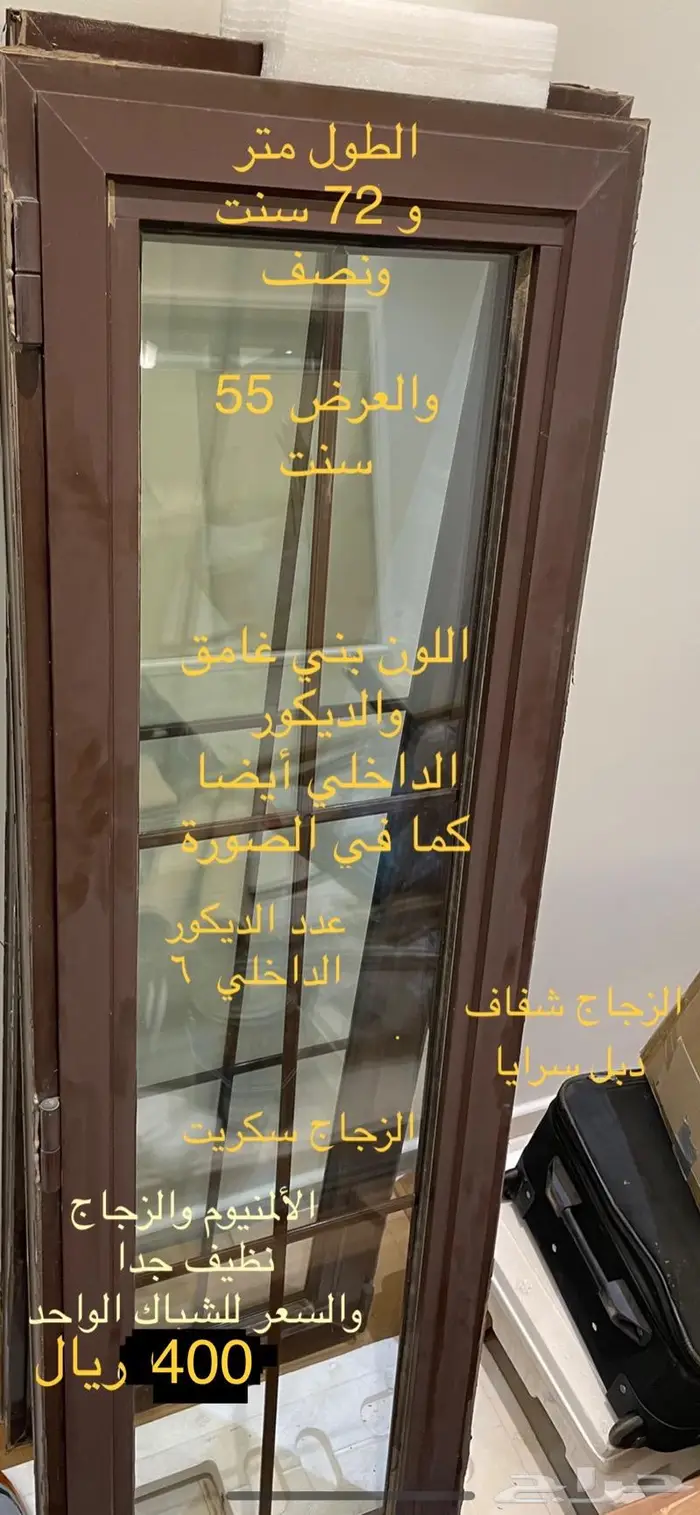 الطول متر
و 72 سنت
ونصف
والعرض 55
سنت
اللون بني غامق
والديكور
الداخلي أيضا
كما في الصورة
عدد الديكور
الداخلي ٦
الزجاج شفاف
دبل سرايا
الزجاج سكريت
الألمنيوم والزجاج
نظيف جدا
والسعر للشباك الواحد
400 ريال
حراج